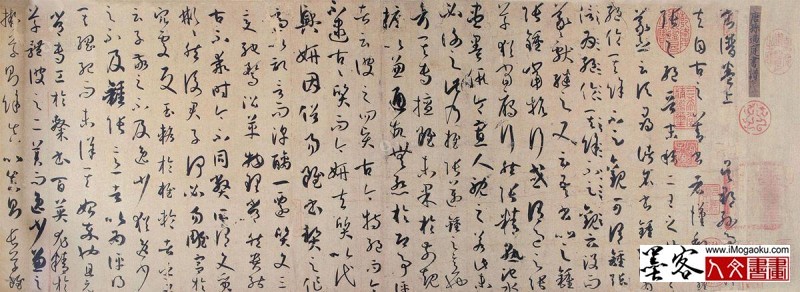 書譜卷上 吳郡孫過
夫自古之善書者漢魏有鍾
張之絕晉末稱二王之妙王
羲之云頃尋諸名書鍾張
信為絕倫其餘不足觀可謂鍾張
云沒而
羲獻繼之又云吾書比之鍾
張鍾當抗行或謂過之張
草猶當雁行然張精熟池水
盡墨假令寡人耽之若此未
必謝之此乃推張邁鍾之意也
考其專擅雖未果於前規
摭以兼通故無慚於即事評
者云彼之四賢古今特絕而今
不逮古古質而今妍夫質以代
興妍因俗易雖書契之作
適以記言而淳醨一遷質文三
變馳騖沿革物理常然貴能
古不乖時今不同弊所謂文質
彬彬然後君子何必易雕宮於
穴處反玉輅於椎輪者乎又
云子敬之不及逸少猶逸少
之不及鍾張意者以為評得
其綱紀而未詳其始卒也且元
常專工於隸書百英尤精於
草體彼之二美而逸少兼之
擬草則餘真比真則長草雖
www.iMogaoku.com
墨客人文書畫
www.iMogaoKu.com